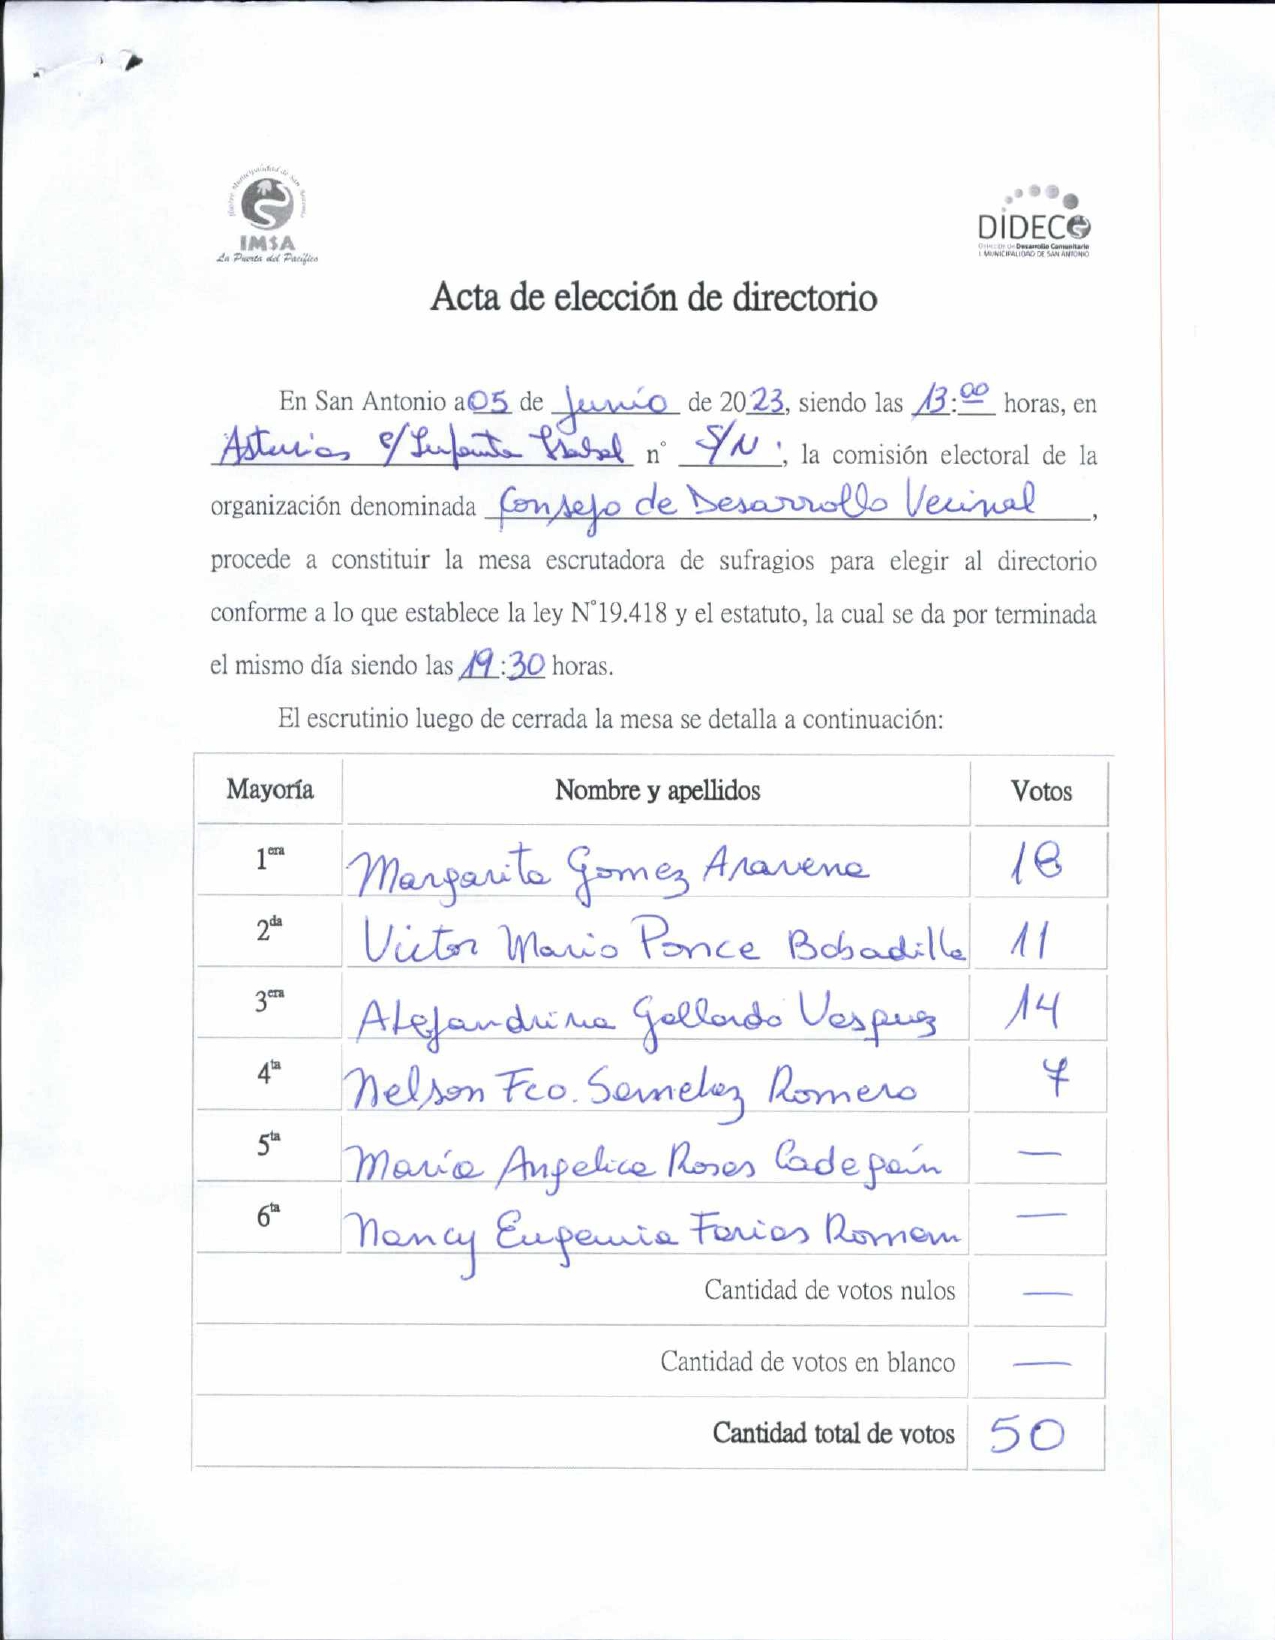 Ilustre Municipalidad de San Antonio
IMSA
La Puerta del Pacífico
DIDECO
Dirección de Desarrollo Comunitario
I. MUNICIPALIDAD DE SAN ANTONIO
Acta de elección de directorio
En San Antonio a 05 de Junio de 2023, siendo las 13:00 horas, en
Asturias e/ Infanta Isabel n° S/N, la comisión electoral de la
organización denominada Consejo de Desarrollo Vecinal,
procede a constituir la mesa escrutadora de sufragios para elegir al directorio
conforme a lo que establece la ley N°19.418 y el estatuto, la cual se da por terminada
el mismo día siendo las 19:30 horas.
El escrutinio luego de cerrada la mesa se detalla a continuación:
Mayoría Nombre y apellidos Votos
1era Margarita Gomez Aravena 18
2da Victor Mario Ponce Bobadilla 11
3era Alejandrina Gallardo Vespuez 14
4ta Nelson Fco. Sanchez Romero 7
5ta María Angelica Rosas Cadepain —
6ta Nancy Eugenia Farias Roman —
Cantidad de votos nulos —
Cantidad de votos en blanco —
Cantidad total de votos 50